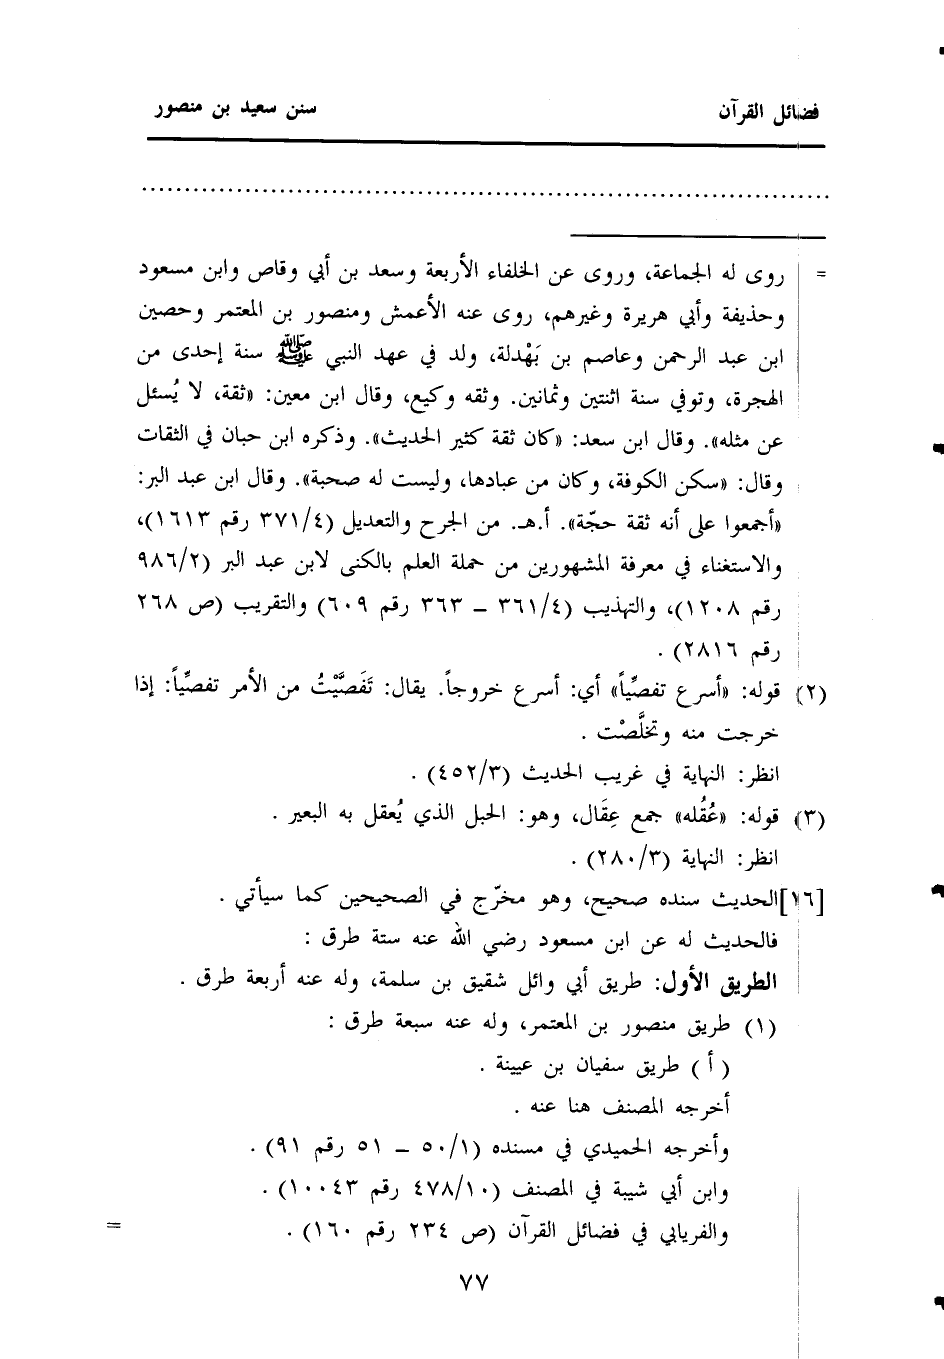 فضائل القرآن سنن سعيد بن منصور
................................................................................
= روى له الجماعة، وروى عن الخلفاء الأربعة وسعد بن أبي وقاص وابن مسعود
وحذيفة وأبي هريرة وغيرهم، روى عنه الأعمش ومنصور بن المعتمر وحصين
ابن عبد الرحمن وعاصم بن بَهْدلة، ولد في عهد النبي ﷺ سنة إحدى من
الهجرة، وتوفي سنة اثنتين وثمانين. وثقه وكيع، وقال ابن معين: «ثقة، لا يُسئل
عن مثله». وقال ابن سعد: «كان ثقة كثير الحديث». وذكره ابن حبان في الثقات
وقال: «سكن الكوفة، وكان من عبادها، وليست له صحبة». وقال ابن عبد البر:
«أجمعوا على أنه ثقة حجّة». أ.هـ. من الجرح والتعديل (٣٧١/٤ رقم ١٦١٣)،
والاستغناء في معرفة المشهورين من حملة العلم بالكنى لابن عبد البر (٩٨٦/٢
رقم ١٢٠٨)، والتهذيب (٣٦١/٤ - ٣٦٣ رقم ٦٠٩) والتقريب (ص ٢٦٨
رقم ٢٨١٦) .
(٢) قوله: «أسرع تفصِّياً» أي: أسرع خروجاً. يقال: تَفَصَّيْتُ من الأمر تفصِّياً: إذا
خرجت منه وتخلَّصْت .
انظر: النهاية في غريب الحديث (٤٥٢/٣) .
(٣) قوله: «عُقُله» جمع عِقَال، وهو: الحبل الذي يُعقل به البعير .
انظر: النهاية (٢٨٠/٣) .
[١٦] الحديث سنده صحيح، وهو مخرّج في الصحيحين كما سيأتي .
فالحديث له عن ابن مسعود رضي الله عنه ستة طرق :
الطريق الأول: طريق أبي وائل شقيق بن سلمة، وله عنه أربعة طرق .
(١) طريق منصور بن المعتمر، وله عنه سبعة طرق :
( أ ) طريق سفيان بن عيينة .
أخرجه المصنف هنا عنه .
وأخرجه الحميدي في مسنده (٥٠/١ - ٥١ رقم ٩١) .
وابن أبي شيبة في المصنف (٤٧٨/١٠ رقم ١٠٠٤٣) .
والفريابي في فضائل القرآن (ص ٢٣٤ رقم ١٦٠) . =
٧٧